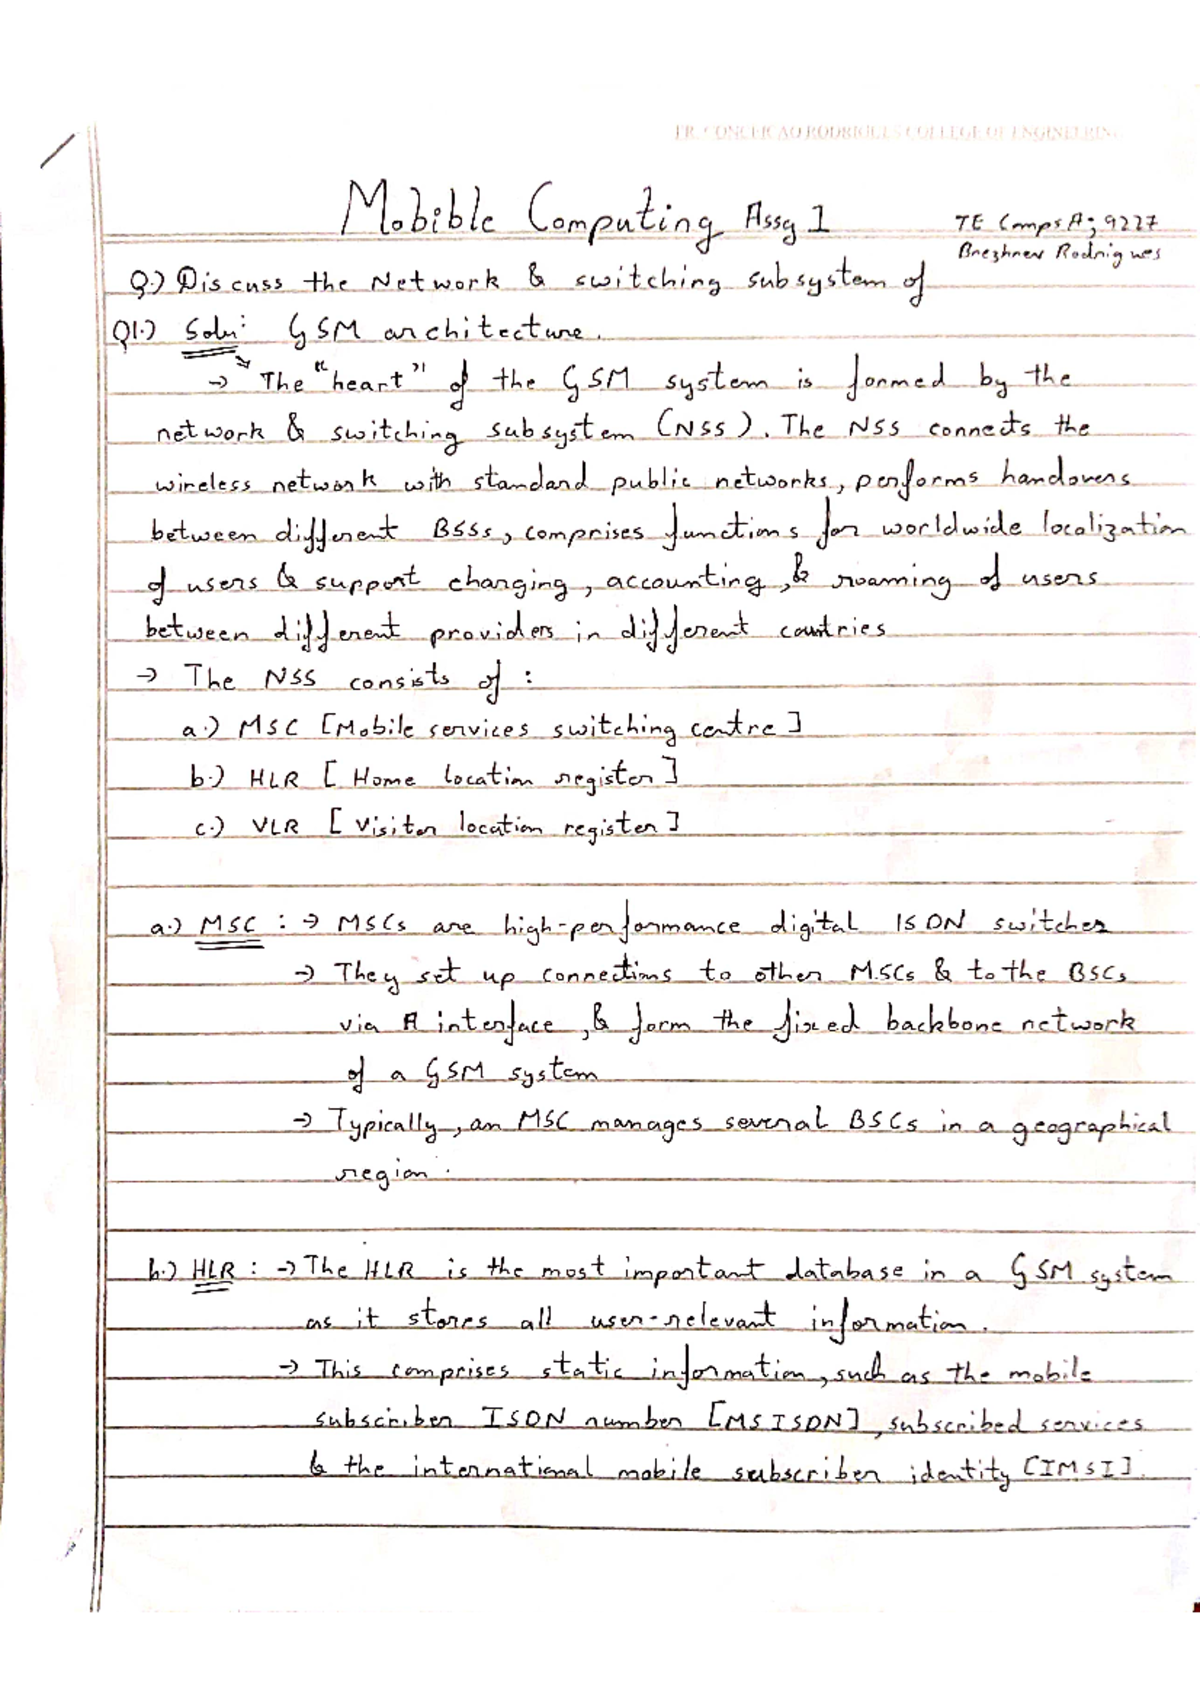 FR. CONCEICAO RODRIGUES COLLEGE OF ENGINEERING
Mobible Computing Assg 1
TE Comps A; 9227
Brezhnev Rodrigues
Q.) Discuss the Network & switching subsystem of
Q1.) Soln: GSM architecture.
→ The "heart" of the GSM system is formed by the
network & switching subsystem (NSS). The NSS connects the
wireless network with standard public networks, performs handovers
between different BSSs, comprises functions for worldwide localization
of users & support charging, accounting, & roaming of users
between different providers in different countries
→ The NSS consists of :
a.) MSC [Mobile services switching centre]
b.) HLR [Home location register]
c.) VLR [Visitor location register]
a.) MSC : → MSCs are high-performance digital ISDN switches
→ They set up connections to other MSCs & to the BSCs
via A interface, & form the fixed backbone network
of a GSM system
→ Typically, an MSC manages several BSCs in a geographical
region.
b.) HLR : → The HLR is the most important database in a GSM system
as it stores all user-relevant information.
→ This comprises static information, such as the mobile
subscriber ISDN number [MSISDN], subscribed services
& the international mobile subscriber identity [IMSI].